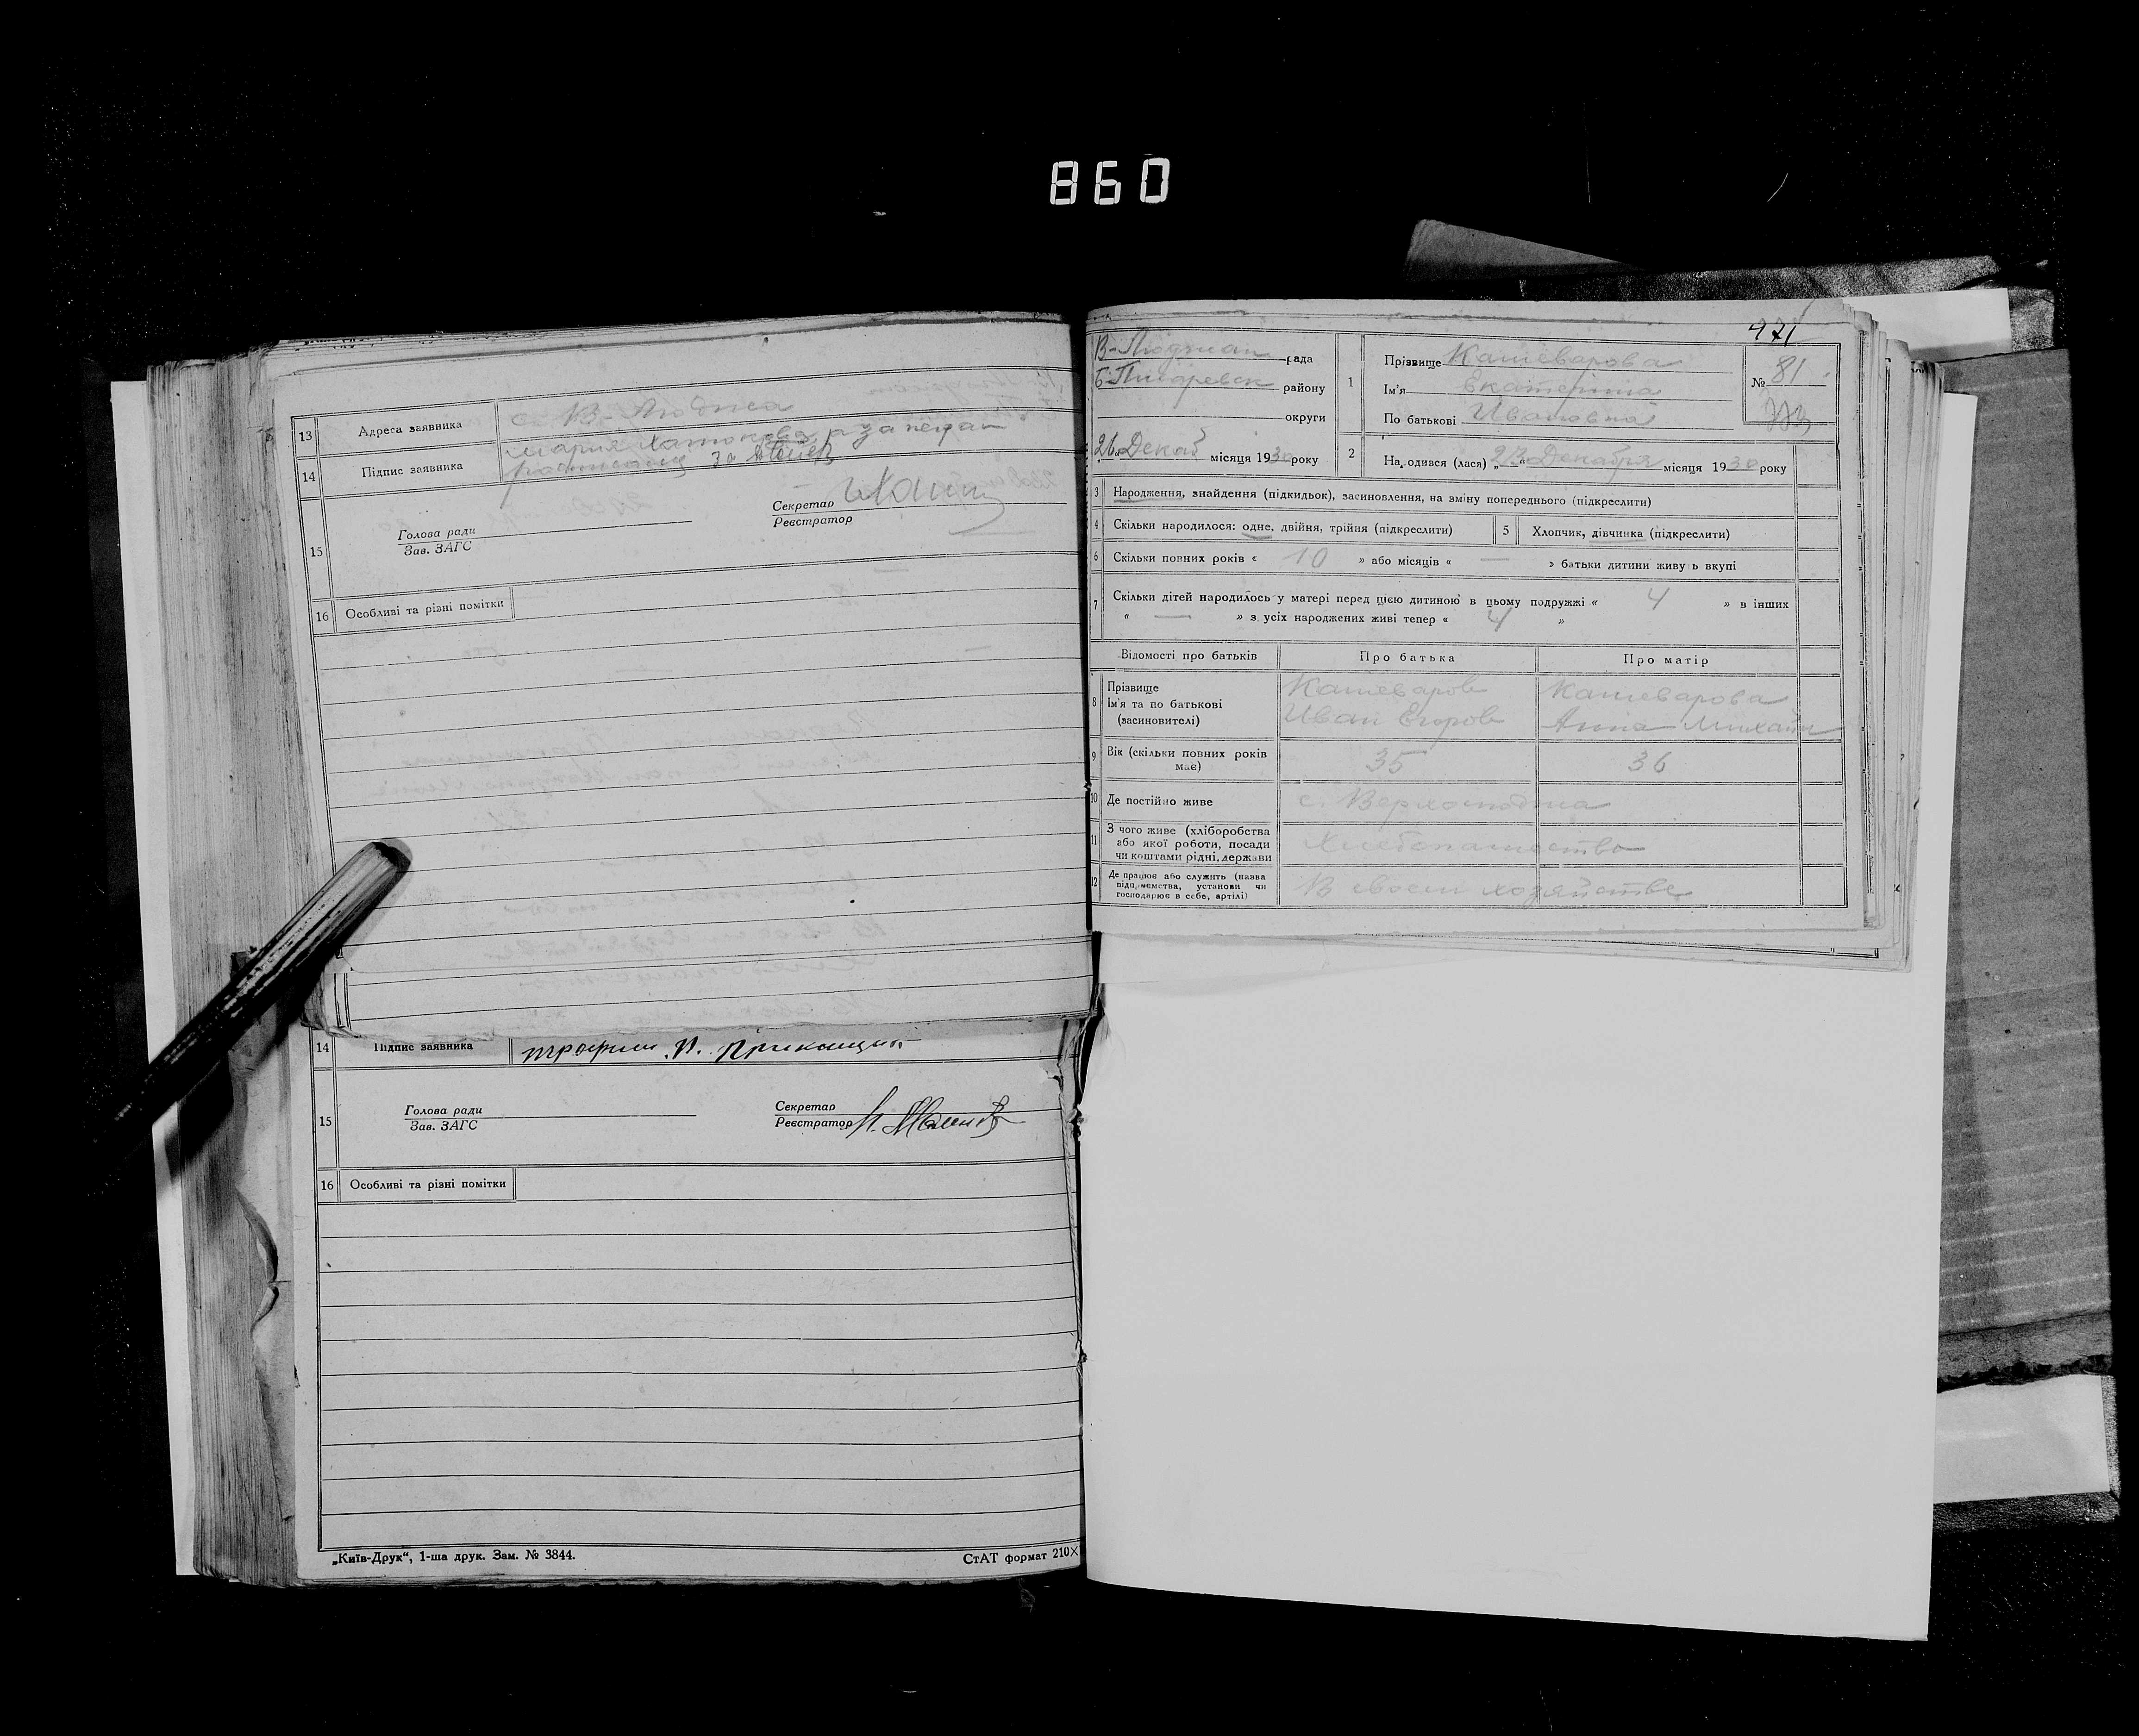 860
13 Адреса заявника с В-Люджа
Мария
14 Підпис заявника за неграм
15 Голова ради
Зав. ЗАГС
Секретар
Реєстратор
16 Особливі та різні помітки
14 Підпис заявника
15 Голова ради
Зав. ЗАГС
Секретар
Реєстратор
16 Особливі та різні помітки
„Київ-Друк“, 1-ша друк. Зам. № 3844.
СтАТ формат 210×
471
В-Люджан рада
Б-Писаревск району
округи
26 Декаб місяця 1930 року
1 Прізвище Кашеварова
Ім'я Екатерина
По батькові Ивановна
№ 81
2 Народився (лася) „ “ Декабря місяця 1930 року
3 Народження, знайдення (підкидьок), засиновлення, на зміну попереднього (підкреслити)
4 Скільки народилося: одне, двійня, трійня (підкреслити)
5 Хлопчик, дівчинка (підкреслити)
6 Скільки повних років « 10 » або місяців « — » батьки дитини живуть вкупі
7 Скільки дітей народилось у матері перед цією дитиною в цьому подружжі « 4 » в інших
« — » з усіх народжених живі тепер « 4 »
Відомості про батьків Про батька Про матір
8 Прізвище Кашеваров Кашеварова
Ім'я та по батькові Иван Егоров Анна Михайл
(засиновителі)
9 Вік (скільки повних років має) 35 36
10 Де постійно живе с. Верхолюджа
11 З чого живе (хліборобства Хлебопашество
або якої роботи, посади
чи коштами рідні, держави
12 Де працює або служить (назва В своем хозяйстве
підприємства, установи чи
господарює в себе, артілі)